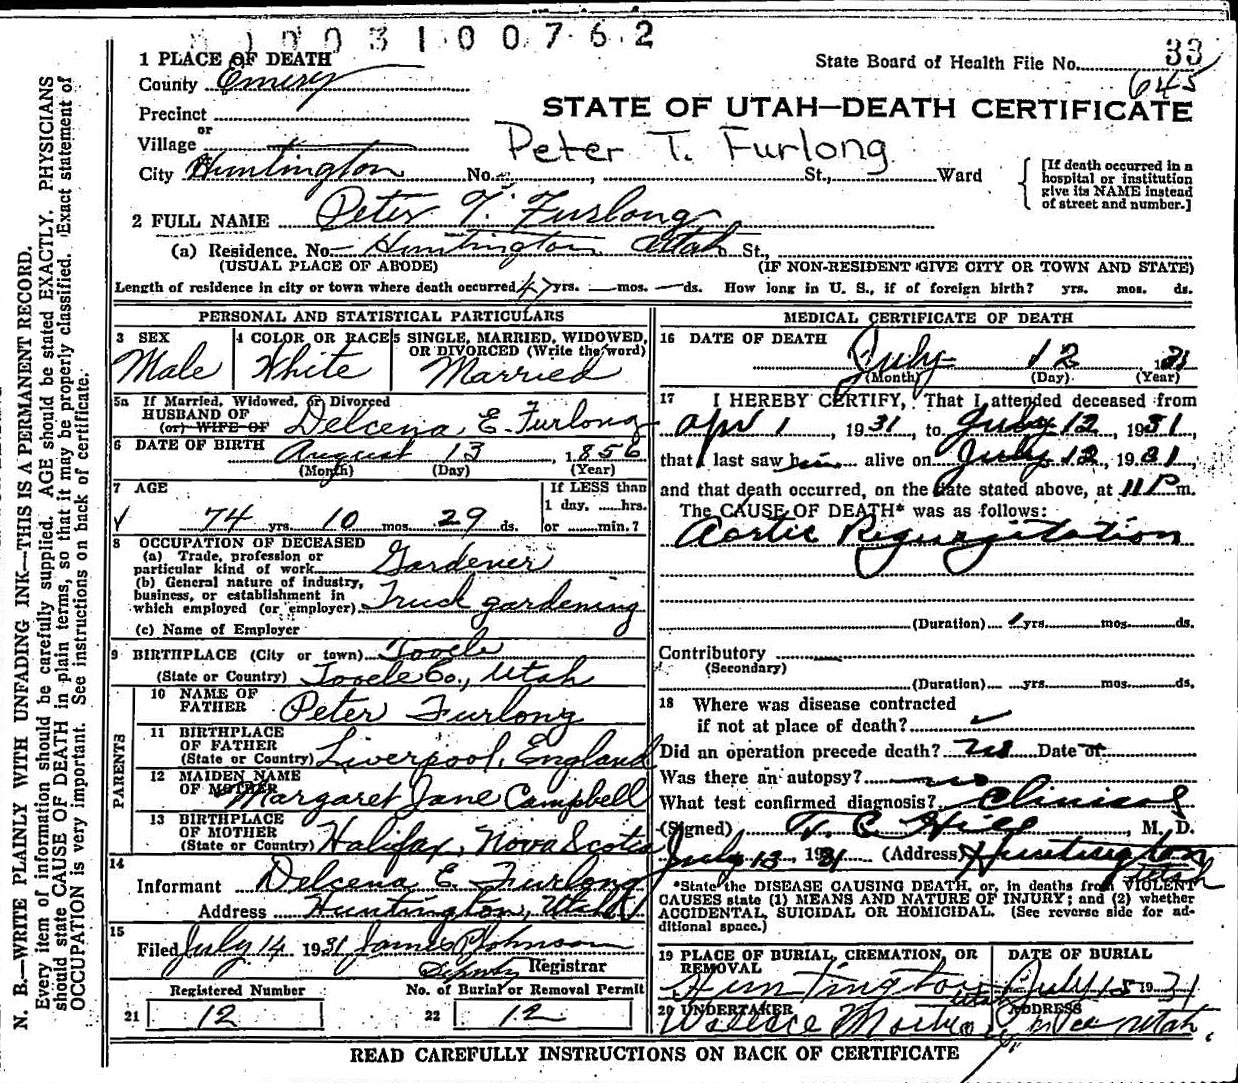 1003100762
1 PLACE OF DEATH
County Emery
State Board of Health File No. 33
645
Precinct
or
Village
STATE OF UTAH—DEATH CERTIFICATE
Peter T. Furlong
City Huntington No. , St., Ward
[If death occurred in a
hospital or institution
give its NAME instead
of street and number.]
2 FULL NAME Peter T. Furlong
(a) Residence. No. Huntington Utah St.,
(USUAL PLACE OF ABODE) (IF NON-RESIDENT GIVE CITY OR TOWN AND STATE)
Length of residence in city or town where death occurred 47 yrs. — mos. — ds. How long in U. S., if of foreign birth? yrs. mos. ds.
PERSONAL AND STATISTICAL PARTICULARS
3 SEX
Male
4 COLOR OR RACE
White
5 SINGLE, MARRIED, WIDOWED,
OR DIVORCED (Write the word)
Married
5a If Married, Widowed, or Divorced
HUSBAND OF
(or) WIFE OF Delcena E. Furlong
6 DATE OF BIRTH August 13, 1856
(Month) (Day) (Year)
7 AGE
74 yrs. 10 mos. 29 ds.
If LESS than
1 day, hrs.
or min.?
8 OCCUPATION OF DECEASED
(a) Trade, profession or
particular kind of work Gardener
(b) General nature of industry,
business, or establishment in
which employed (or employer) Truck gardening
(c) Name of Employer
9 BIRTHPLACE (City or town) Tooele
(State or Country) Tooele Co., Utah
PARENTS
10 NAME OF
FATHER Peter Furlong
11 BIRTHPLACE
OF FATHER
(State or Country) Liverpool, England
12 MAIDEN NAME
OF MOTHER Margaret Jane Campbell
13 BIRTHPLACE
OF MOTHER
(State or Country) Halifax, Nova Scotia
14
Informant Delcena E. Furlong
Address Huntington, Utah
15
Filed July 14 1931 James P Johnson
Deputy Registrar
Registered Number
21 12
No. of Burial or Removal Permit
22 12
MEDICAL CERTIFICATE OF DEATH
16 DATE OF DEATH
July 12 1931
(Month) (Day) (Year)
17 I HEREBY CERTIFY, That I attended deceased from
Apr 1, 1931, to July 12, 1931,
that I last saw him alive on July 12, 1931,
and that death occurred, on the date stated above, at 11 P m.
The CAUSE OF DEATH* was as follows:
Aortic Regurgitation
(Duration) 1 yrs. mos. ds.
Contributory
(Secondary)
(Duration) yrs. mos. ds.
18 Where was disease contracted
if not at place of death?
Did an operation precede death? no Date of
Was there an autopsy? no
What test confirmed diagnosis? Clinical
(Signed) T. C. Hill, M. D.
July 13, 1931 (Address) Huntington
Utah
*State the DISEASE CAUSING DEATH, or, in deaths from VIOLENT
CAUSES state (1) MEANS AND NATURE OF INJURY; and (2) whether
ACCIDENTAL, SUICIDAL OR HOMICIDAL. (See reverse side for ad-
ditional space.)
19 PLACE OF BURIAL, CREMATION, OR
REMOVAL
Huntington Utah
DATE OF BURIAL
July 15 1931
20 UNDERTAKER
Wallace
ADDRESS
Price Utah
READ CAREFULLY INSTRUCTIONS ON BACK OF CERTIFICATE
N. B.—WRITE PLAINLY WITH UNFADING INK—THIS IS A PERMANENT RECORD.
Every item of information should be carefully supplied. AGE should be stated EXACTLY. PHYSICIANS
should state CAUSE OF DEATH in plain terms, so that it may be properly classified. Exact statement of
OCCUPATION is very important. See instructions on back of certificate.